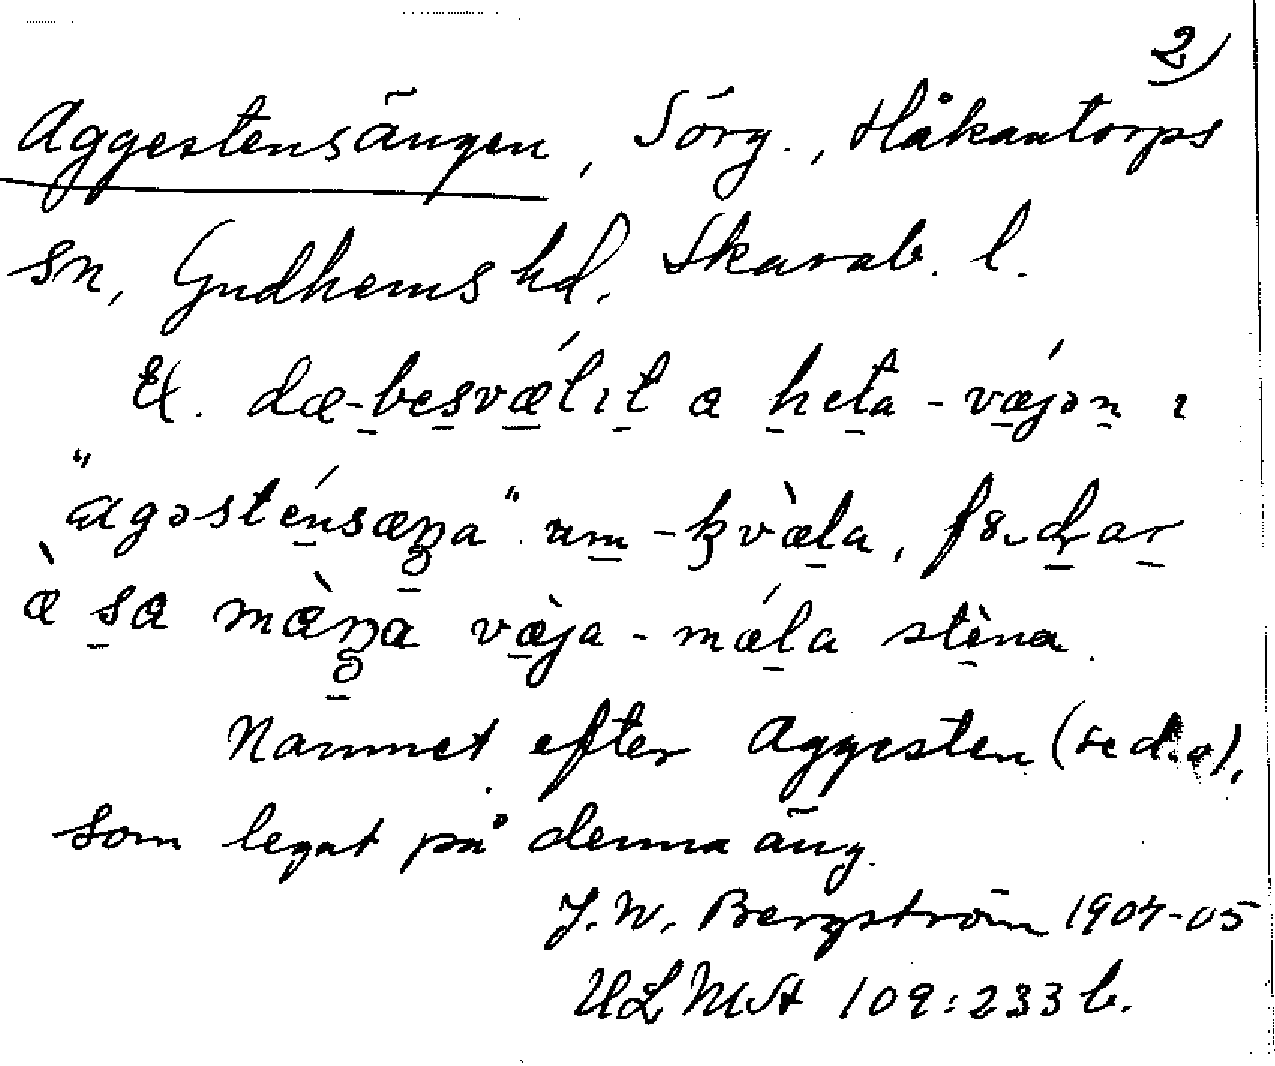 2)
Aggestensängen, Sörg., Håkantorps
sn, Gudhems hd, Skarab. l.
Ex. dæ-besvælıt a heta - væjən ı
"agəsténsæŋa" um - kvæla, før dar
æ sa mæŋa væja - mæla stèna.
Namnet efter Aggesten (se d.o),
som legat på denna äng.
J. W. Bergström 1904-05
ULMA 109:233 b.